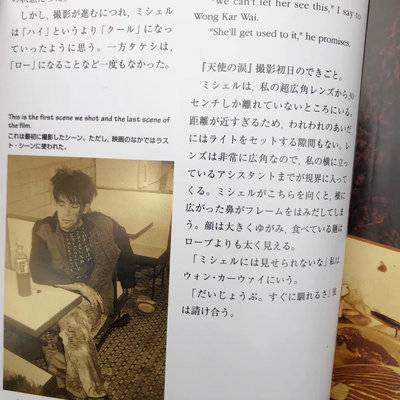 しかし、撮影が進むにつれ、ミシェル
は「ハイ」というより「クール」になっ
ていったように思う。一方タケシは、
「ロー」になることなど一度もなかった。
This is the first scene we shot and the last scene of
the film.
これは最初に撮影したシーン。ただし、映画のなかではラス
ト・シーンに使われた。
"We can't let her see this," I say to
Wong Kar Wai.
"She'll get used to it," he promises.
『天使の涙』撮影初日のできごと。
ミシェルは、私の超広角レンズから30
センチしか離れていないところにいる。
距離が近すぎるため、われわれのあいだ
にはライトをセットする隙間もない。レ
ンズは非常に広角なので、私の横に立っ
ているアシスタントまでが視界に入って
くる。ミシェルがこちらを向くと、横に
広がった鼻がフレームをはみだしてしま
う。顔は大きくゆがみ、食べている麺は
ロープよりも太く見える。
「ミシェルには見せられないな」私は
ウォン・カーウァイにいう。
「だいじょうぶ。すぐに馴れるさ」彼
は請け合う。